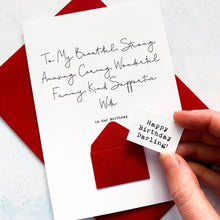 To My Beautiful, Strong,
Amazing, Caring, Wonderful
Funny, Kind, Supportive
Wife
on her birthday
Happy
Birthday
Darling!